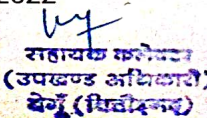 2022
सहायक कलेक्टर
(उपखण्ड अधिकारी)
बेगूँ (चित्तौड़गढ़)